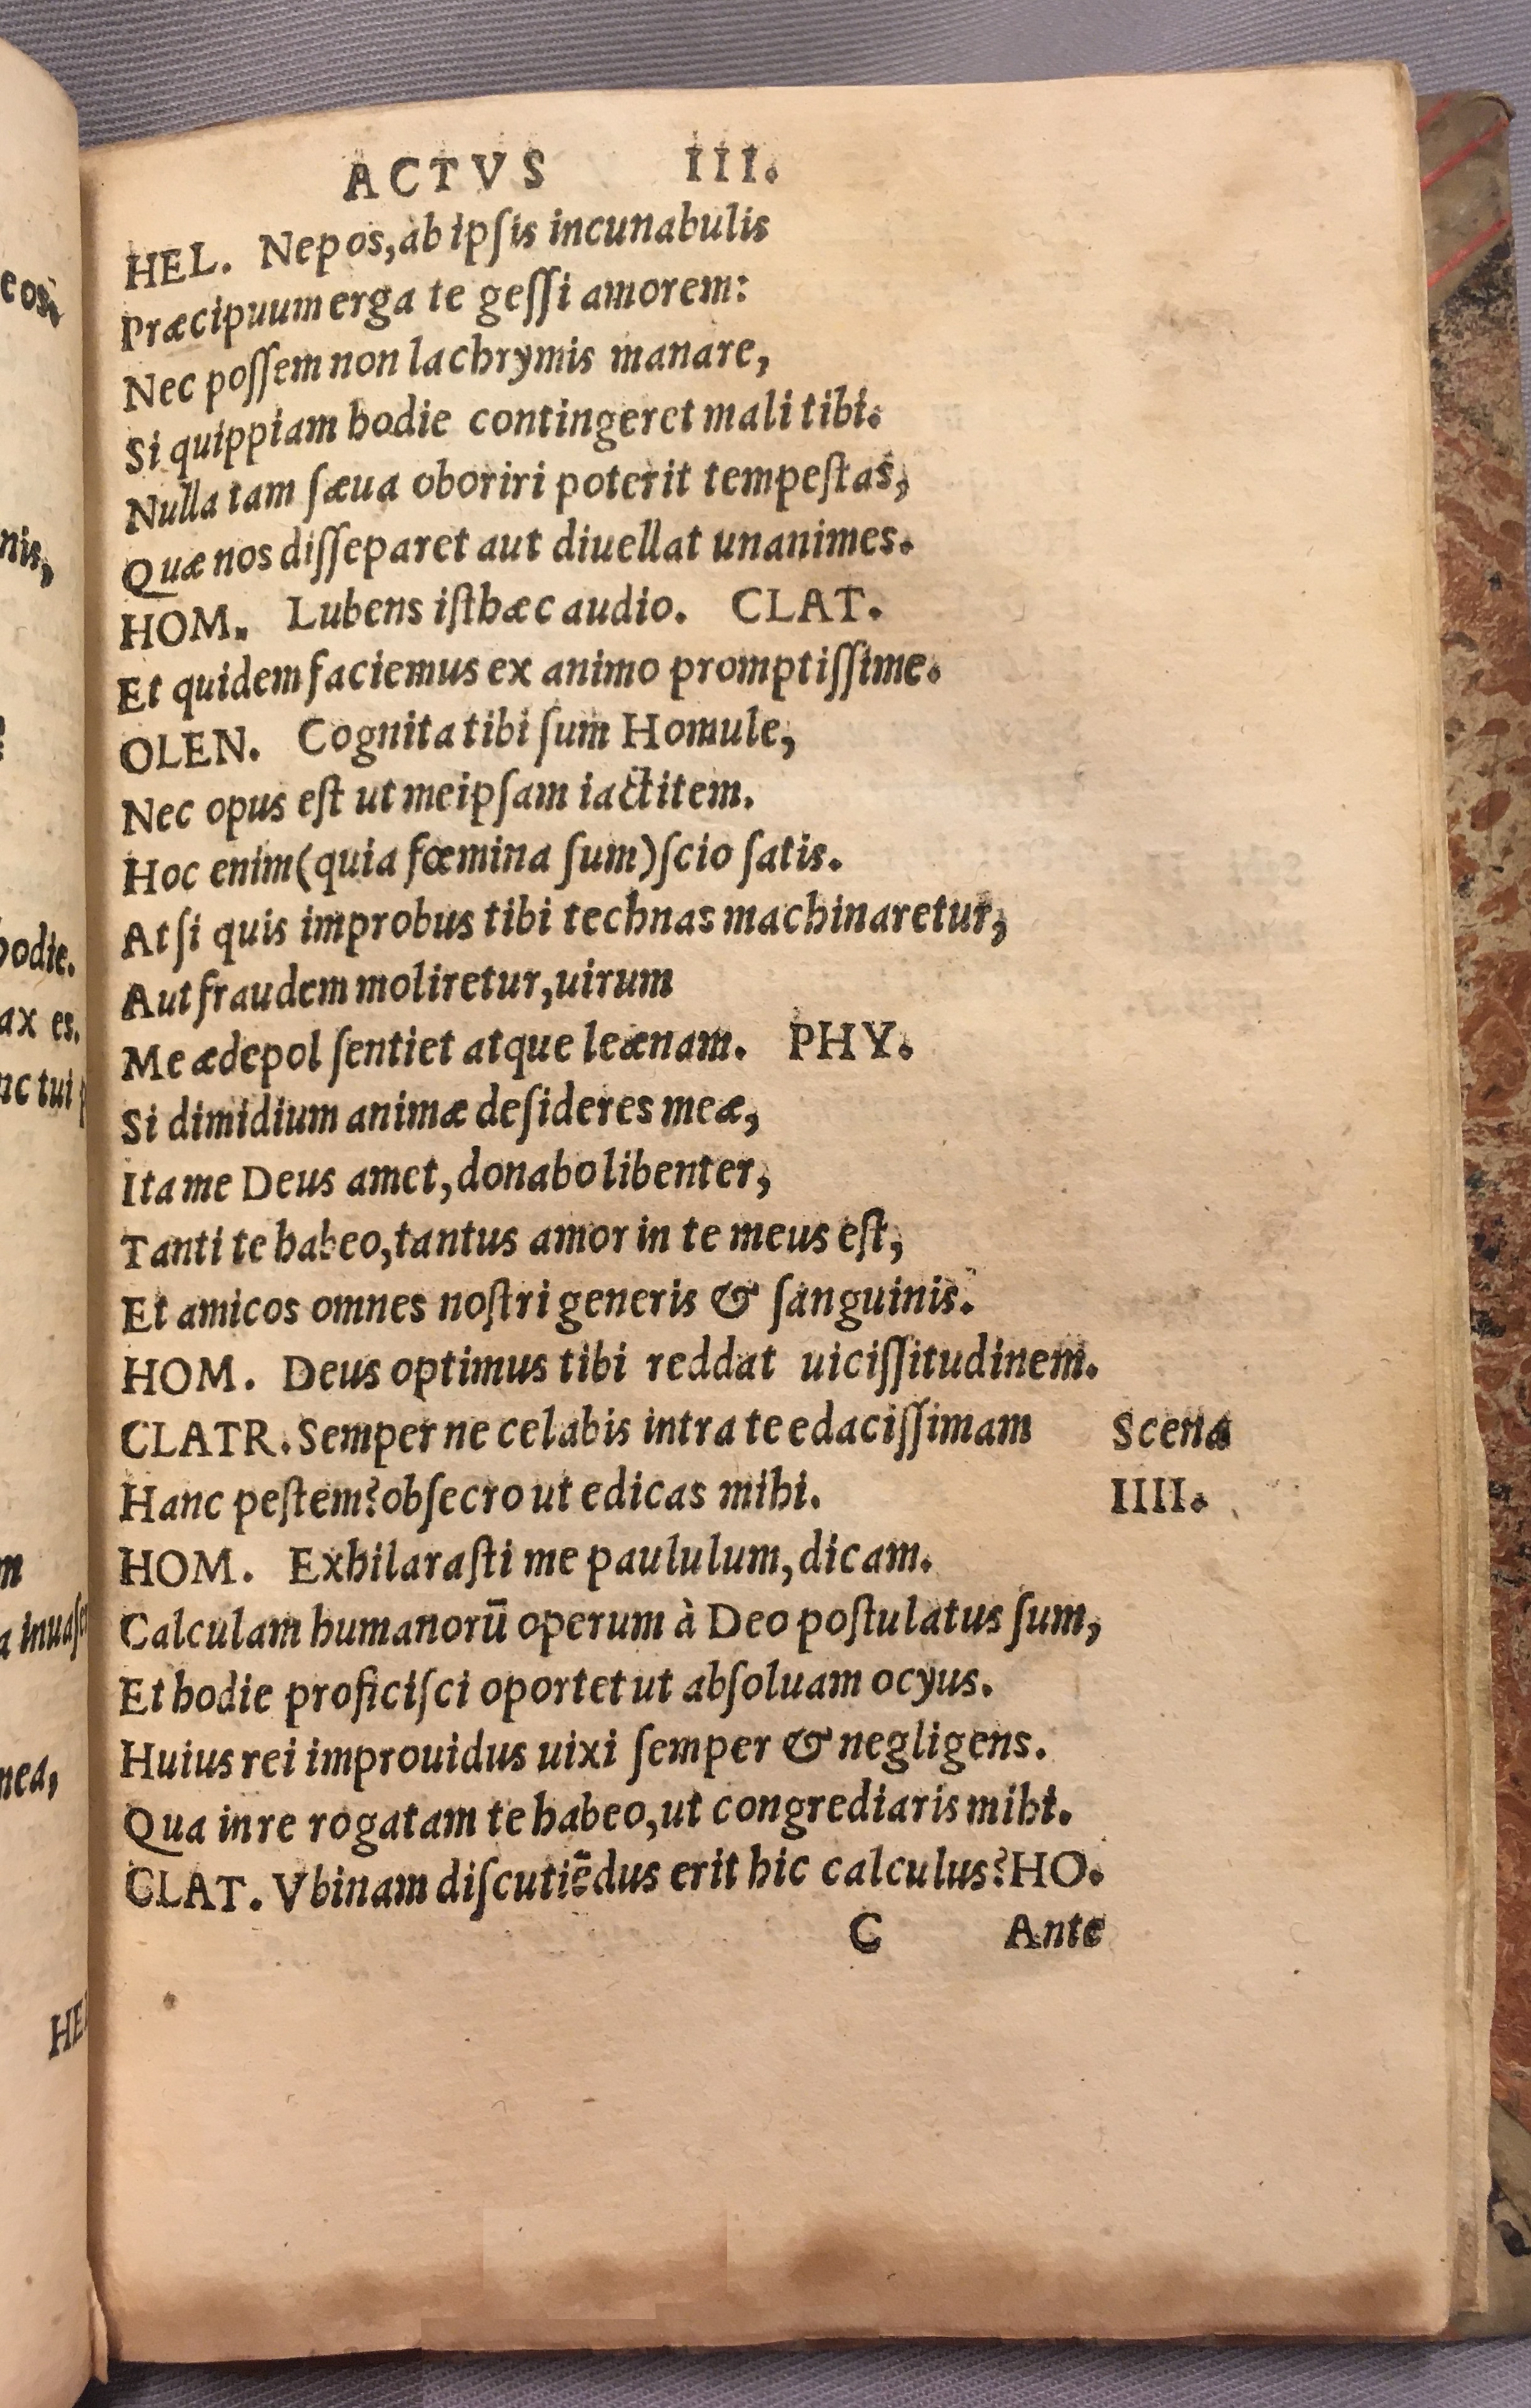 ACTVS III.
HEL. Nepos, ab ipſis incunabulis
Præcipuum erga te geſſi amorem:
Nec poſſem non lachrymis manare,
Si quippiam hodie contingeret mali tibi.
Nulla tam ſæua oboriri poterit tempeſtas,
Quæ nos diſſeparet aut diuellat unanimes.
HOM. Lubens iſthæc audio. CLAT.
Et quidem faciemus ex animo promptiſſime.
OLEN. Cognita tibi ſum Homule,
Nec opus eſt ut meipſam iactitem.
Hoc enim (quia fœmina ſum) ſcio ſatis.
At ſi quis improbus tibi technas machinaretur,
Aut fraudem moliretur, uirum
Me ædepol ſentiet atque leænam. PHY.
Si dimidium animæ deſideres meæ,
Ita me Deus amet, donabo libenter,
Tanti te habeo, tantus amor in te meus eſt,
Et amicos omnes noſtri generis & ſanguinis.
HOM. Deus optimus tibi reddat uiciſſitudinem.
CLATR. Semper ne celabis intra te edaciſſimam Scena
Hanc peſtem? obſecro ut edicas mihi. IIII.
HOM. Exhilaraſti me paululum, dicam.
Calculam humanorū operum à Deo poſtulatus ſum,
Et hodie proficiſci oportet ut abſoluam ocyus.
Huius rei improuidus uixi ſemper & negligens.
Qua in re rogatam te habeo, ut congrediaris mihi.
CLAT. Vbinam diſcutiēdus erit hic calculus? HO.
C Ante